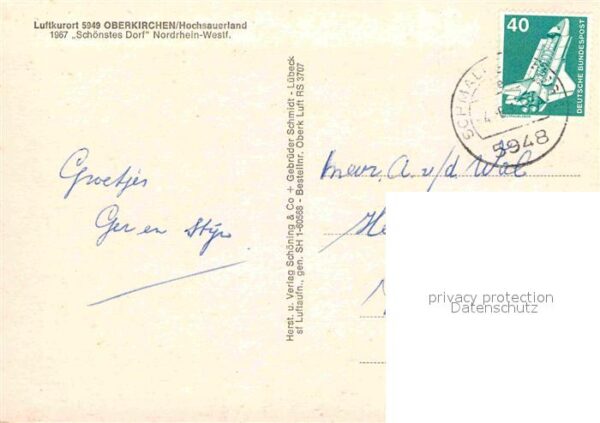 Luftkurort 5949 OBERKIRCHEN/Hochsauerland
1967 „Schönstes Dorf" Nordrhein-Westf.
40
DEUTSCHE BUNDESPOST
SCHMAL
5948
Groetjes
Ger en
Herst. u. Verlag Schöning & Co + Gebrüder Schmidt - Lübeck
sf Luftaufn., gen. SH 1-60568 - Bestellnr. Oberk Luft RS 3707
A. v/d Wal
privacy protection
Datenschutz